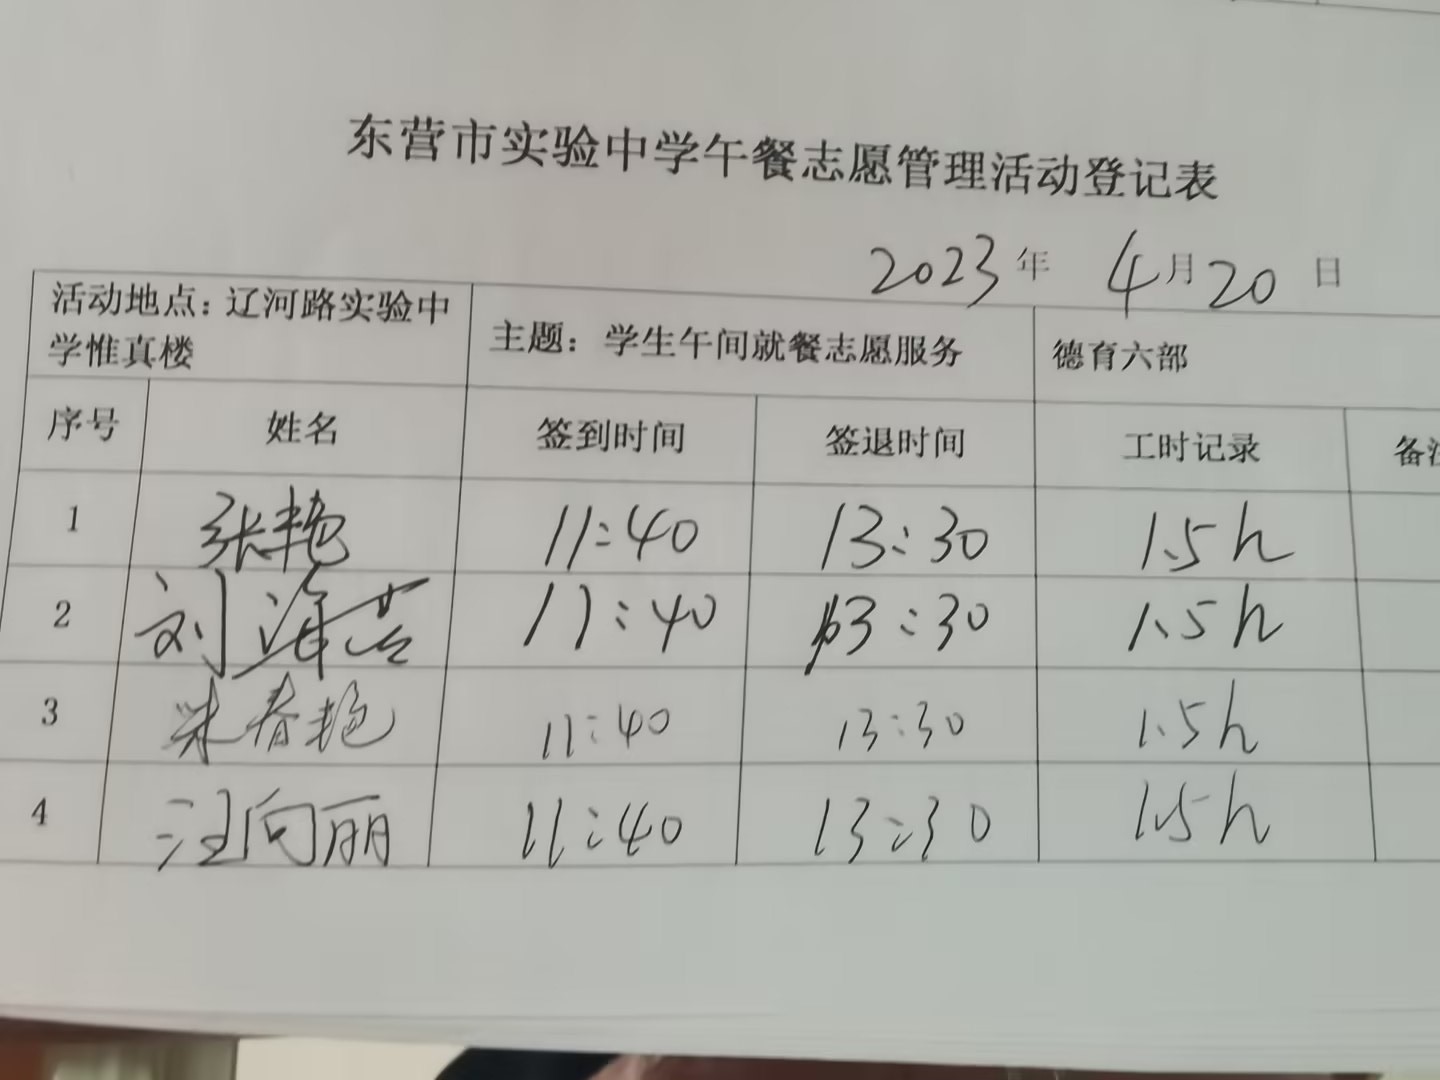 东营市实验中学午餐志愿管理活动登记表
2023年 4月20日
活动地点：辽河路实验中
学惟真楼
主题：学生午间就餐志愿服务
德育六部
序号 姓名 签到时间 签退时间 工时记录 备注
1 张艳 11:40 13:30 1.5h
2 刘海芸 11:40 13:30 1.5h
3 春艳 11:40 13:30 1.5h
4 汪向丽 11:40 13:30 1.5h